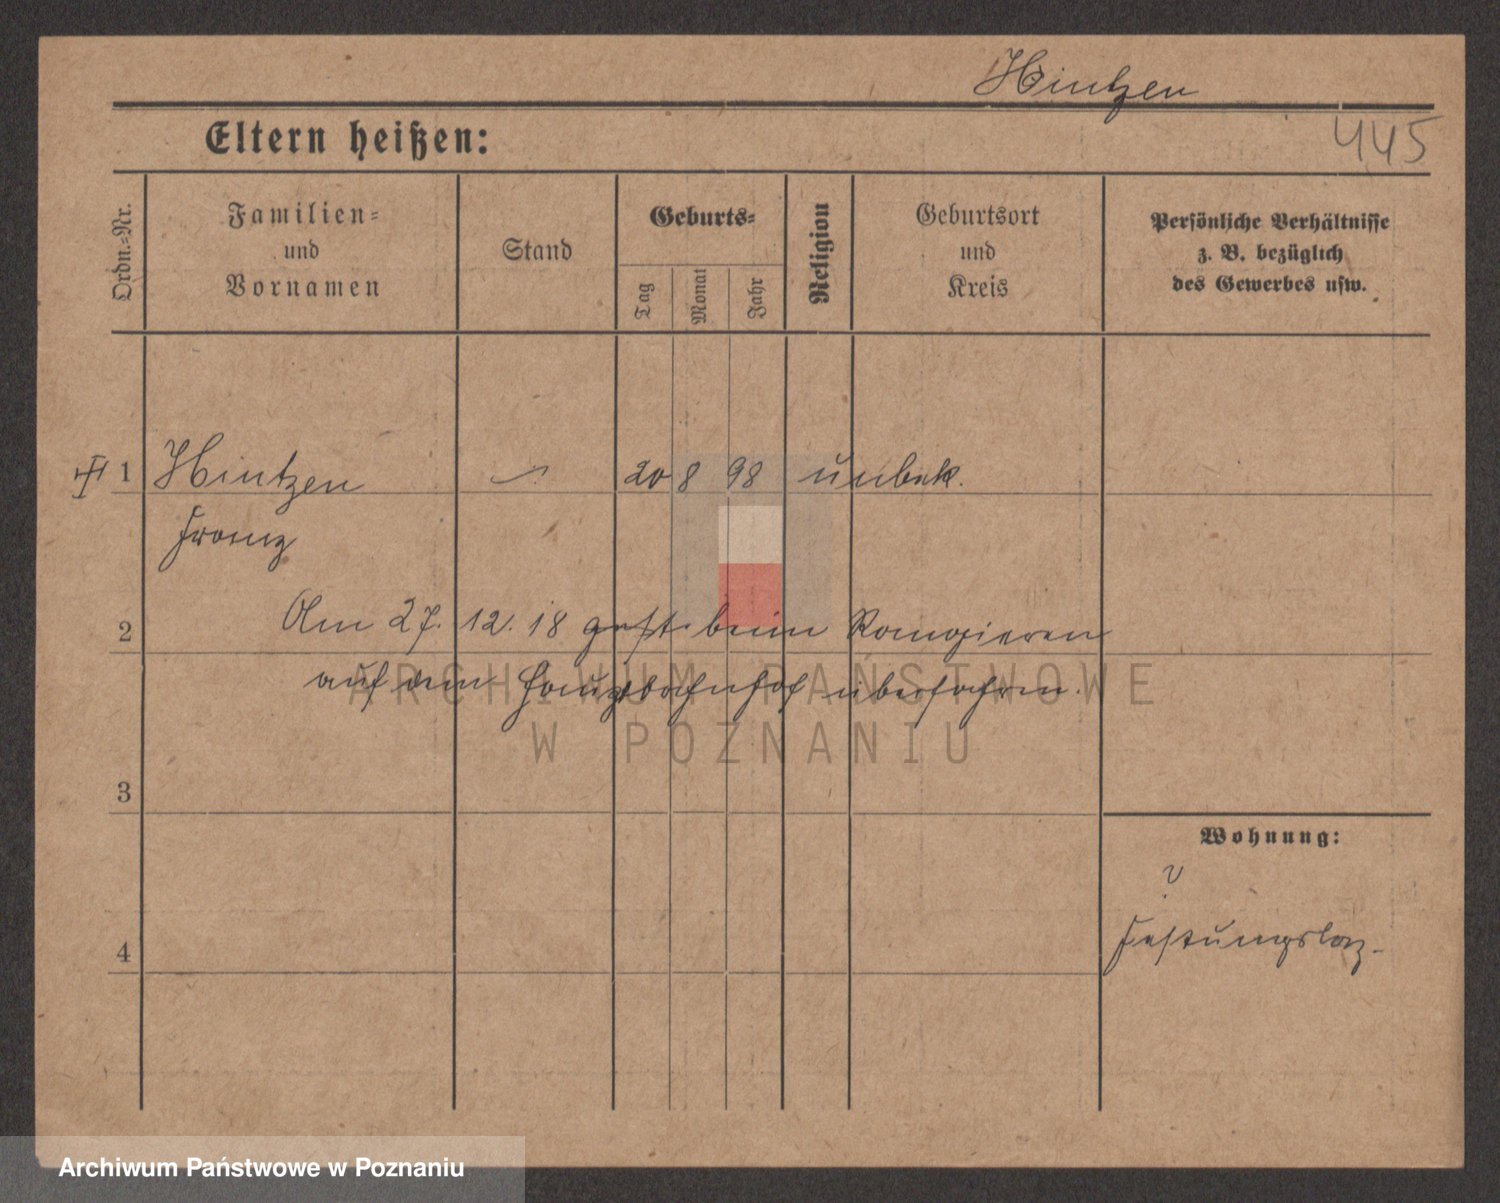 Hintzen
Eltern heißen:
445
Ordn.-Nr.
Familien-
und
Vornamen
Stand
Geburts-
Tag
Monat
Jahr
Religion
Geburtsort
und
Kreis
Persönliche Verhältnisse
z. B. bezüglich
des Gewerbes usw.
1 Hintzen 20 8 98 unbek.
Franz
2 Am 27. 12. 18 gest. beim Rangieren
auf dem Hauptbahnhof überfahren.
ARCHIWUM PAŃSTWOWE
W POZNANIU
3
Wohnung:
Festungslaz.
4
Archiwum Państwowe w Poznaniu